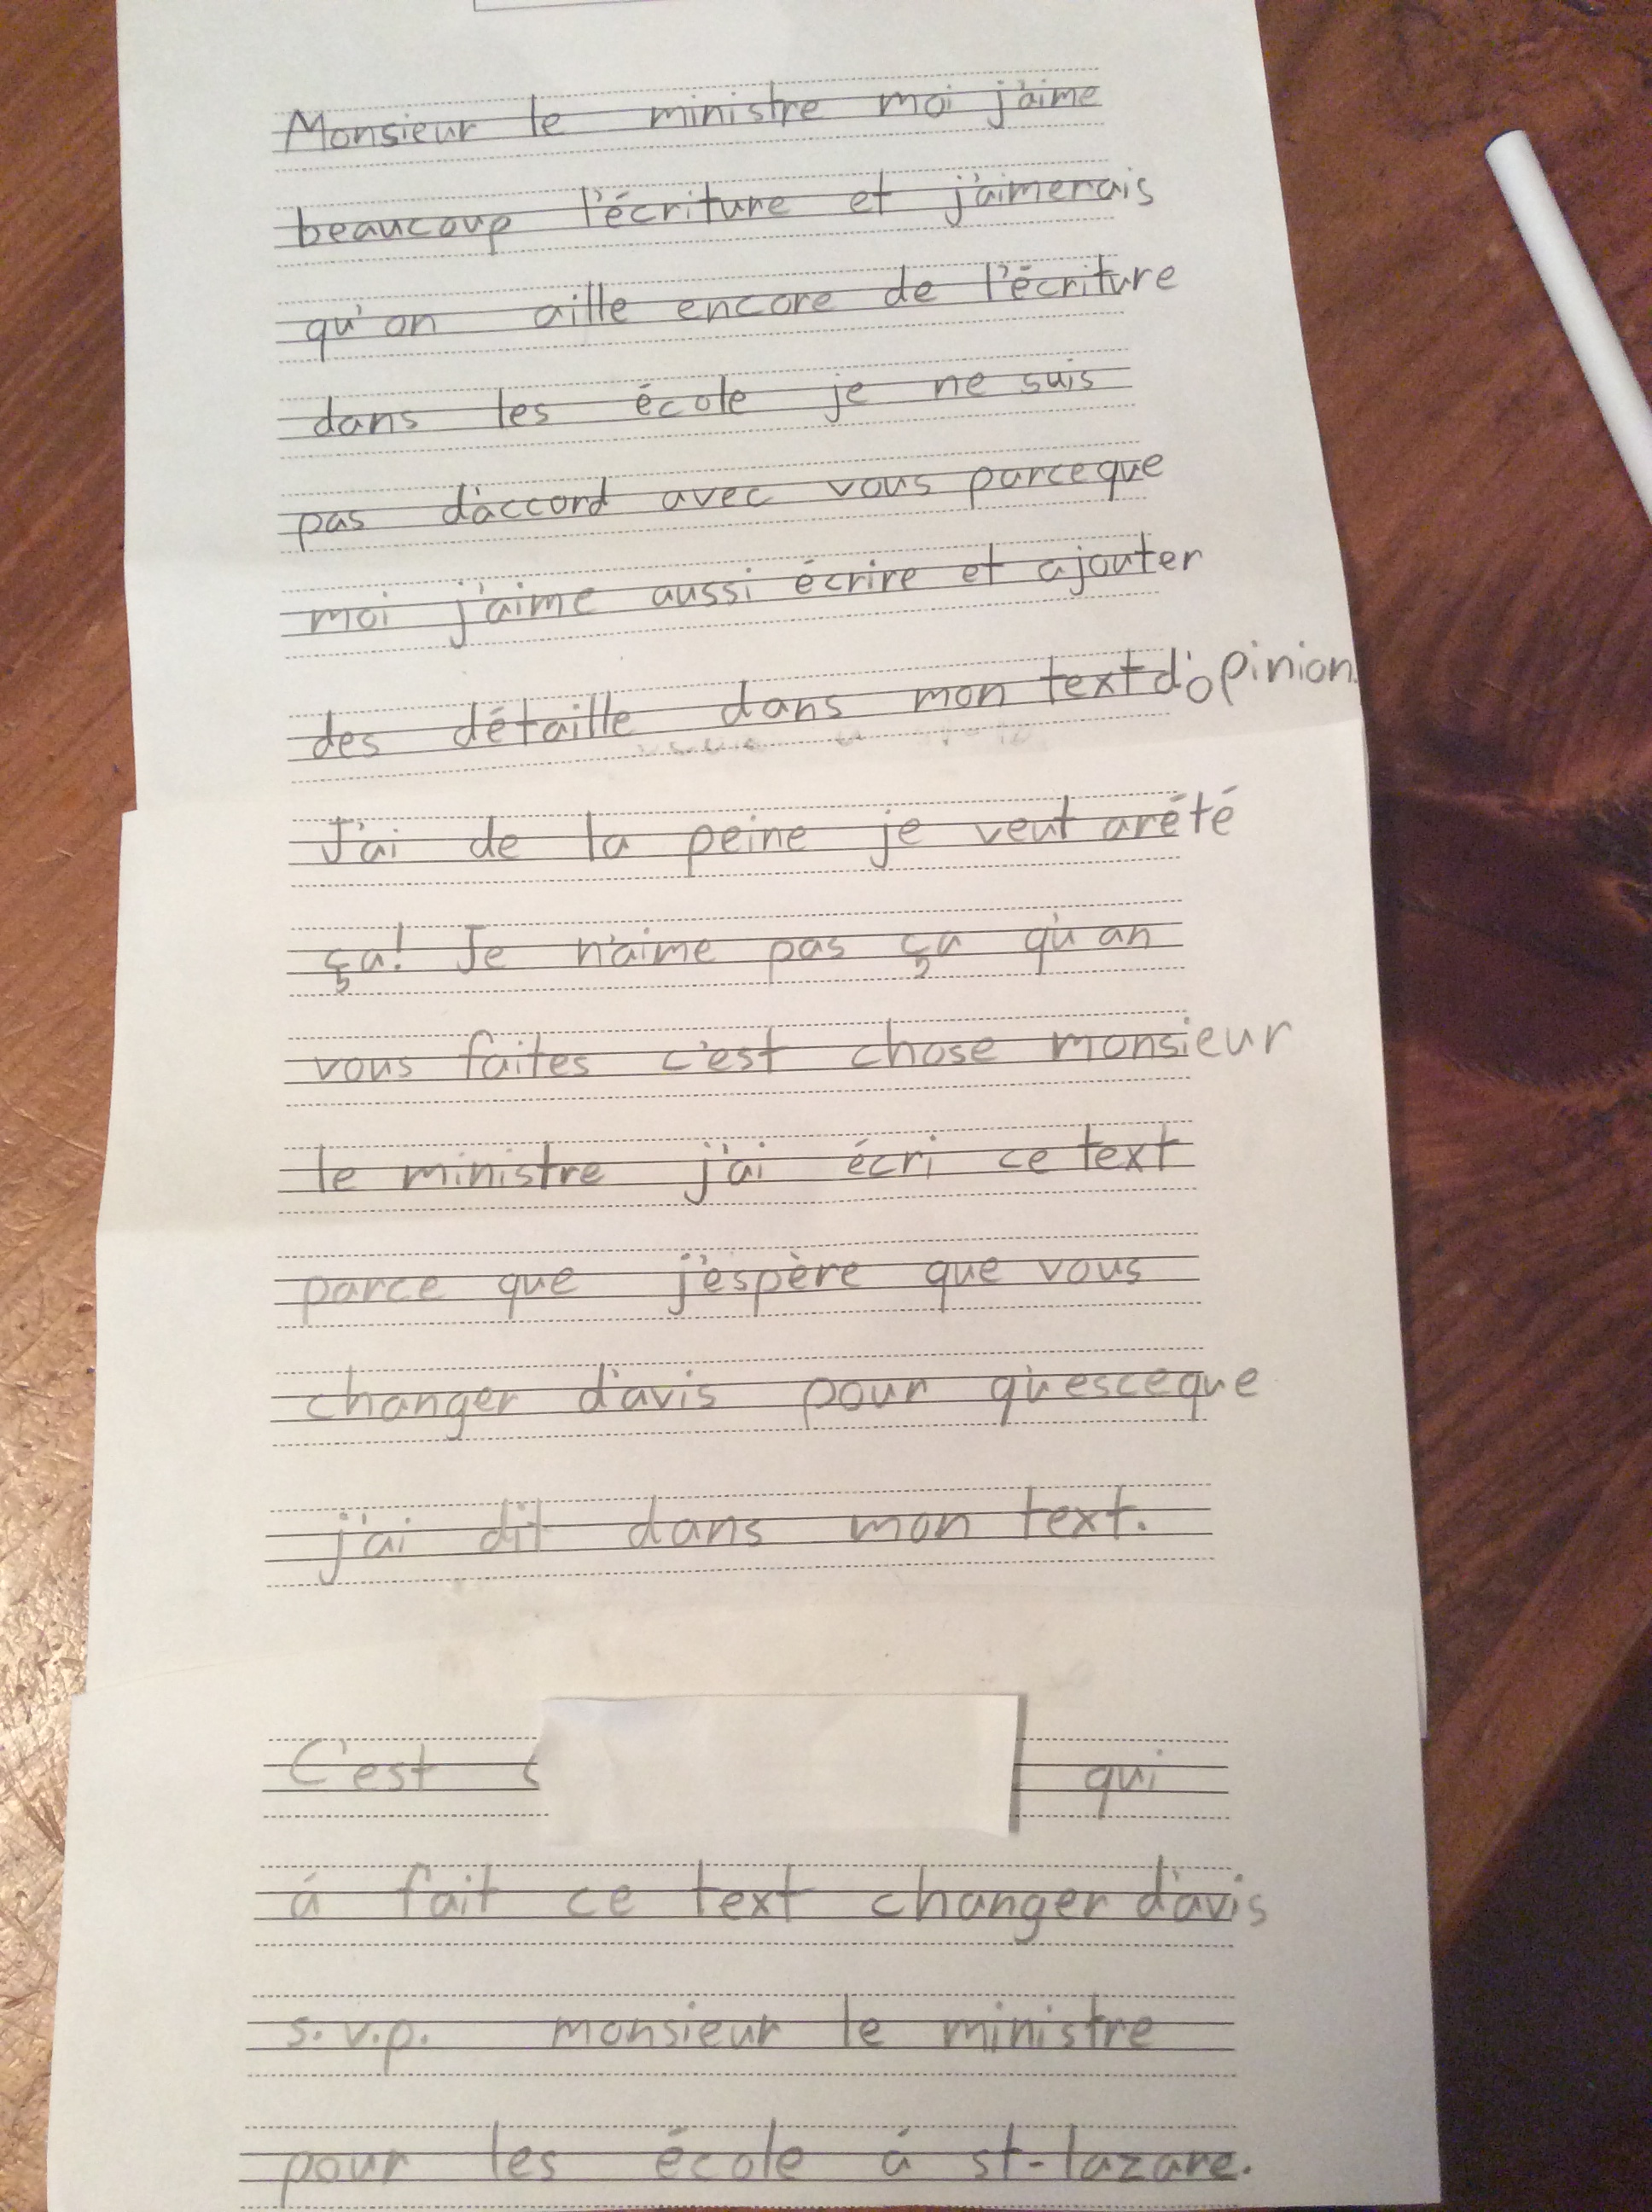 Monsieur le ministre moi j'aime
beaucoup l'écriture et j'aimerais
qu'on aille encore de l'écriture
dans les école je ne suis
pas d'accord avec vous parceque
moi j'aime aussi écrire et ajouter
des détaille dans mon text d'opinion.
J'ai de la peine je veut arété
ça! Je n'aime pas ça qu'an
vous faites c'est chose monsieur
le ministre j'ai écri ce text
parce que j'espère que vous
changer d'avis pour qu'esceque
j'ai dit dans mon text.
C'est qui
á fait ce text changer d'avis
s.v.p. monsieur le ministre
pour les école á st-lazare.